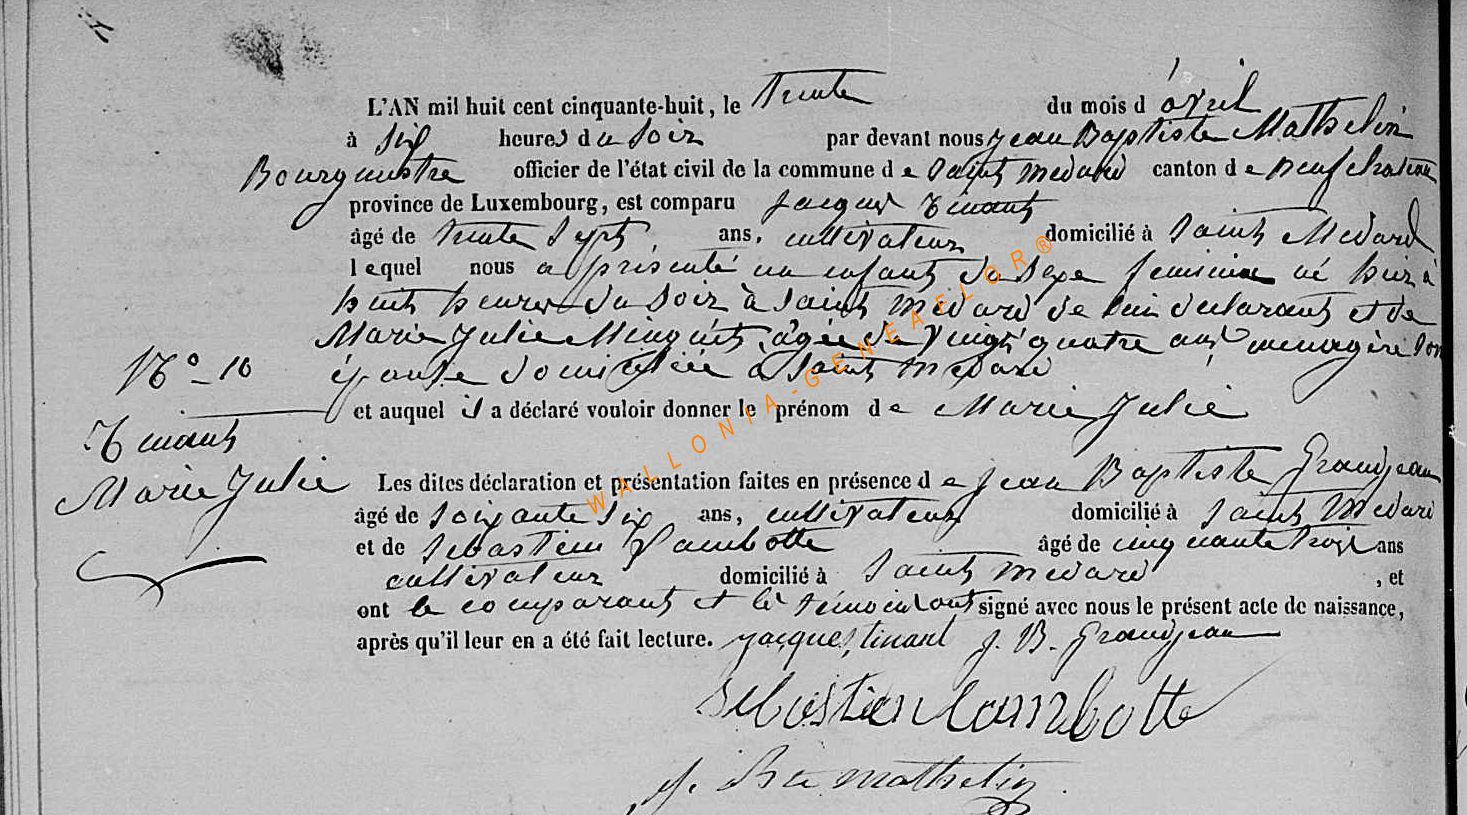 L'AN mil huit cent cinquante-huit, le trente du mois d'avril
à six heures du soir par devant nous Jean Baptiste Mathelin
Bourgmestre officier de l'état civil de la commune de Saint Medard canton de neufchateau
province de Luxembourg, est comparu Jacques Tinant
âgé de trente Sept ans, cultivateur domicilié à Saint Medard
lequel nous a présenté un enfant du Sexe feminin né hier à
huit heures du Soir à Saint Medard de lui declarant et de
Marie Julie agée de vingt quatre ans menagère Son
épouse domiciliée à Saint Medard
N° 10
et auquel il a déclaré vouloir donner le prénom de Marie Julie
Tinant
Marie Julie
Les dites déclaration et présentation faites en présence de Jean Baptiste Grandjean
âgé de Soixante Six ans, cultivateur domicilié à Saint Medard
et de Sebastien Lambotte âgé de cinquante trois ans
cultivateur domicilié à Saint Medard , et
ont le comparant et les témoins ont signé avec nous le présent acte de naissance,
après qu'il leur en a été fait lecture. Jacques tinant J. B. Grandjean
Sebastien Lambotte
J. Bte Mathelin
WALLONIA-GENEAELOR®